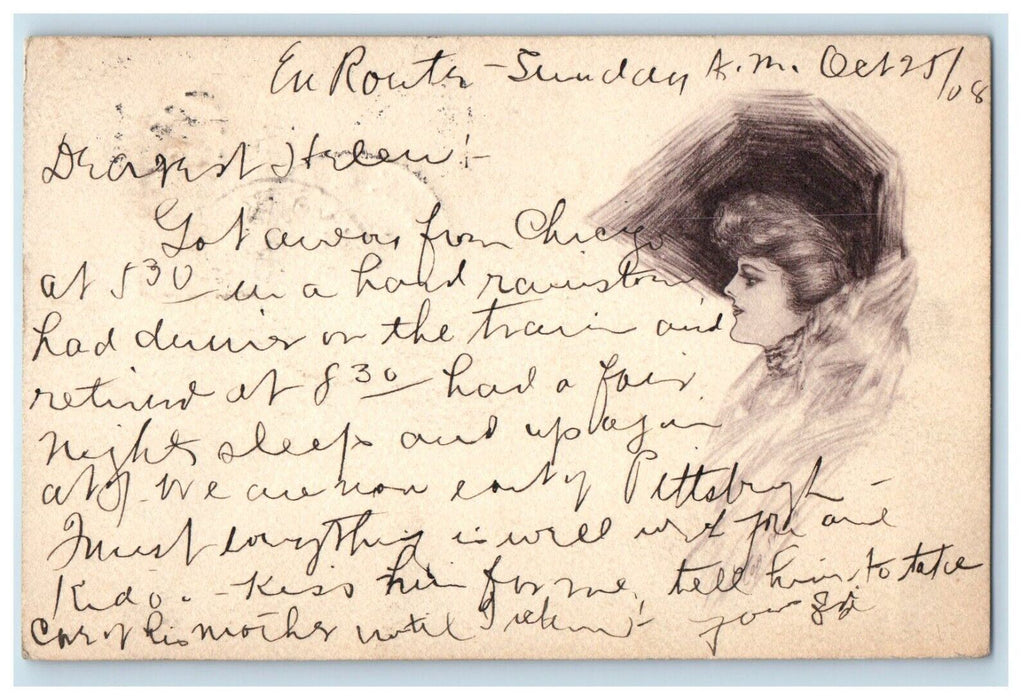 En Route - Sunday A.M. Oct 25/08
Dearest Helen! -
Got away from Chicago
at 5 30 in a hard rainstorm,
had dinner on the train and
retired at 8 30 had a fair
nights sleep and up again
at 7. We are now east of Pittsburgh -
Trust everything is well with you and
Kido. - Kiss him for me, tell him to take
care of his mother until I return! - your Ed